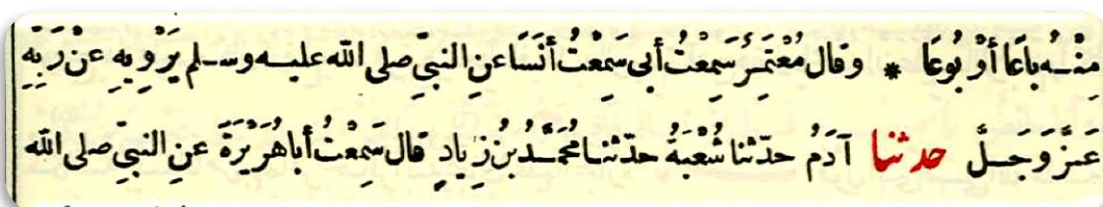 مِنْهُ بَاعًا أَوْ بُوعًا * وقال مُعْتَمِرٌ سَمِعْتُ أبي سَمِعْتُ أَنَسًا عنِ النبيِّ صلى الله عليه وسلم يَرْوِيهِ عنْ رَبِّهِ
عَزَّ وَجَلَّ حدثنا آدَمُ حدّثنا شُعْبَةُ حدّثنا مُحَمَّدُ بنُ زِيادٍ قال سَمِعْتُ أبا هُرَيْرَةَ عنِ النبيِّ صلى الله